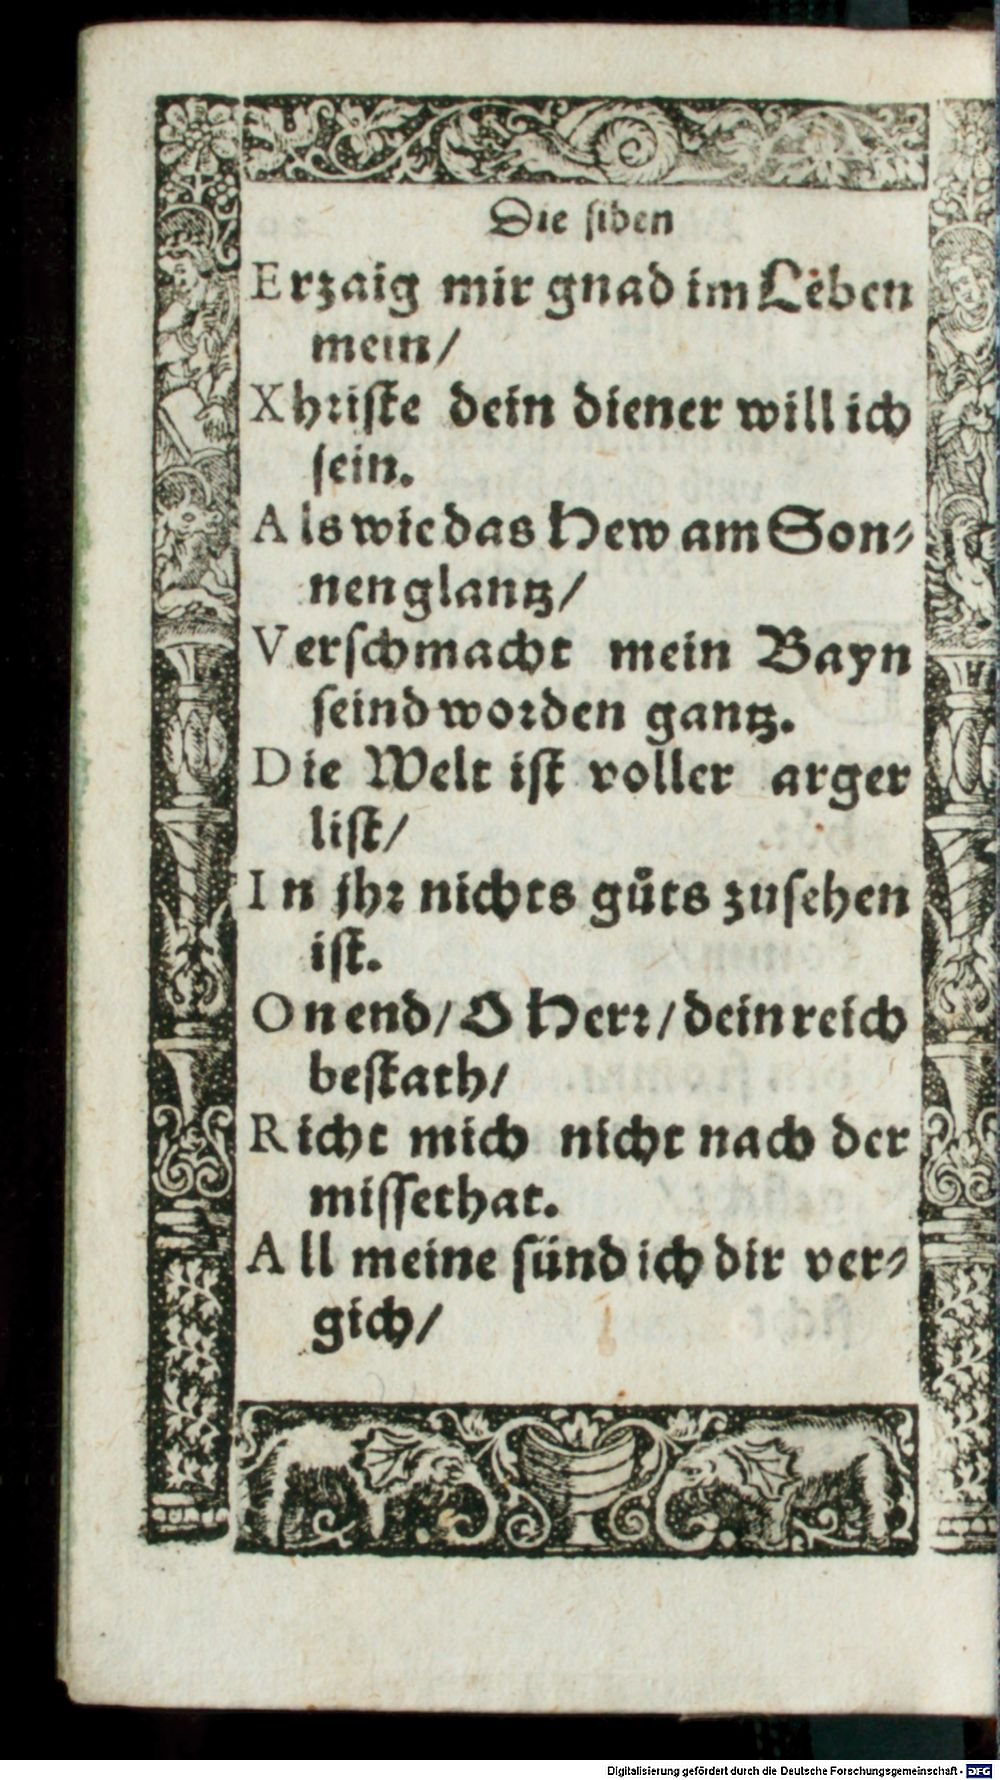 Die siben
Erzaig mir gnad im Lebẽn
mein/
Xhriste dein diener will ich
sein.
Als wie das Hew am Son⸗
nen glantz/
Verschmacht mein Bayn
seind worden gantz.
Die Welt ist voller arger
list/
In jhr nichts gůts zusehen
ist.
On end/ O Herr/ dein reich
bestath/
Richt mich nicht nach der
missethat.
All meine sünd ich dir ver⸗
gich/
Digitalisierung gefördert durch die Deutsche Forschungsgemeinschaft - DFG